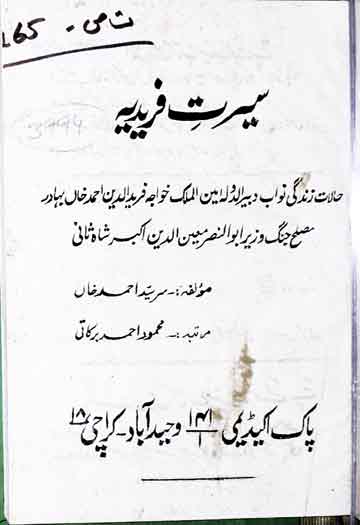 سیرتِ فریدیہ
حالات زندگی نواب دبیرالدولہ امین الملک خواجہ فرید الدین احمد خاں بہادر
مصلح جنگ وزیر ابوالنصر معین الدین اکبر شاہ ثانی
مؤلفہ :- سرسید احمد خاں
مرتبہ :- محمود احمد برکاتی
پاک اکیڈیمی ۱۴۱/۱ وحیدآباد - کراچی ۱۸